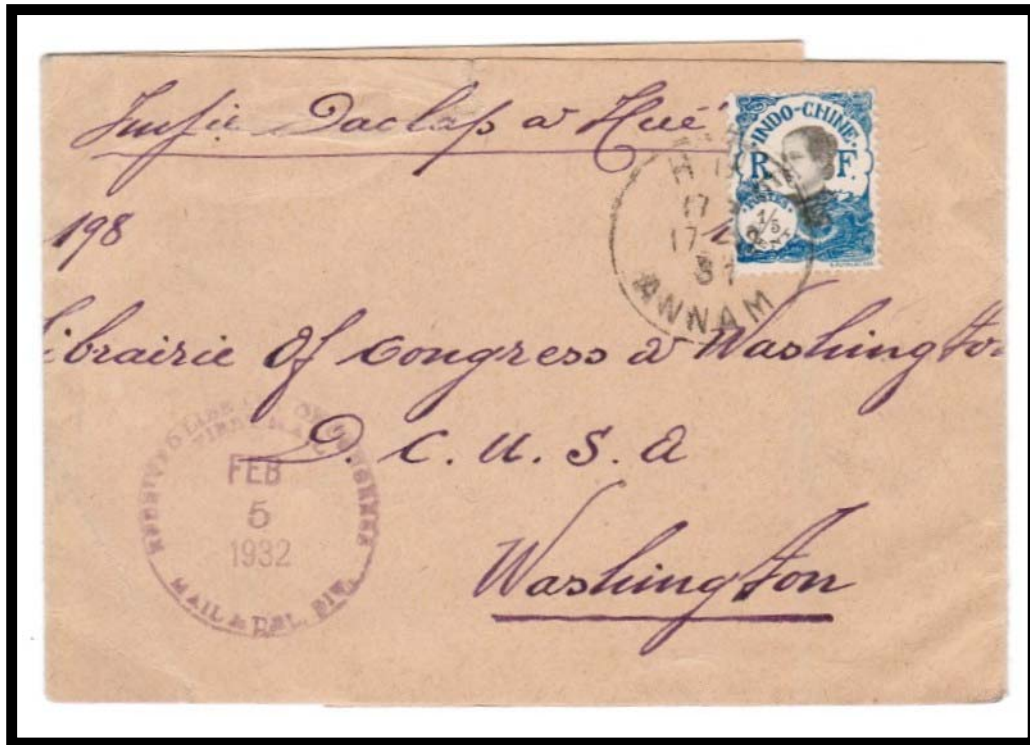 Daclap a Hué
INDO-CHINE
R. F.
POSTES 1/5 CENT
198
17
17
31
ANNAM
Librairie Of Congress a Washington
D. C. U. S. A
Washington
RECEIVED LIBRARY OF CONGRESS
FEB
5
1932
MAIL & DEL. DIV.